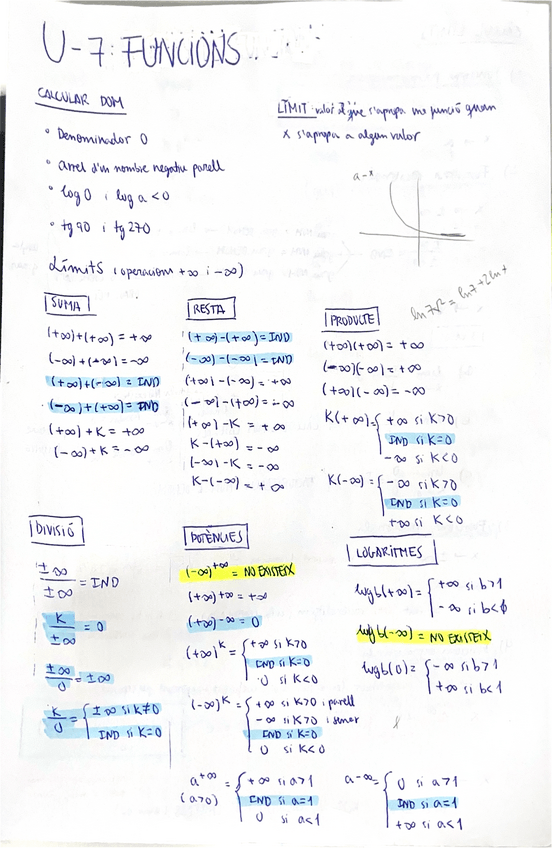 U-7: FUNCIONS
CALCULAR DOM
° Denominador 0
° arrel d'un nombre negatiu parell
° log 0 i log a < 0
° tg 90 i tg 270
LÍMIT: valor al que s'apropa una funció quan
x s'apropa a algun valor
a-x
Límits (operacions +∞ i -∞)
ln 7x² = ln7+2ln
SUMA
(+∞)+(+∞) = +∞
(-∞)+(-∞) = -∞
(+∞)+(-∞) = IND
(-∞)+(+∞) = IND
(+∞)+K = +∞
(-∞)+K = -∞
RESTA
(+∞)-(+∞) = IND
(-∞)-(-∞) = IND
(+∞)-(-∞) = +∞
(-∞)-(+∞) = -∞
(+∞)-K = +∞
K-(+∞) = -∞
(-∞)-K = -∞
K-(-∞) = +∞
PRODUCTE
(+∞)(+∞) = +∞
(-∞)(-∞) = +∞
(+∞)(-∞) = -∞
K(+∞) = { +∞ si K>0
IND si K=0
-∞ si K<0
K(-∞) = { -∞ si K>0
IND si K=0
+∞ si K<0
DIVISIÓ
±∞/±∞ = IND
K/±∞ = 0
±∞/0 = ±∞
K/0 = { ±∞ si K≠0
IND si K=0
POTÈNCIES
(-∞)^+∞ = NO EXISTEIX
(+∞)^+∞ = +∞
(+∞)^-∞ = 0
(+∞)^K = { +∞ si K>0
IND si K=0
0 si K<0
(-∞)^K = { +∞ si K>0 i parell
-∞ si K>0 i senar
IND si K=0
0 si K<0
a^+∞ = { +∞ si a>1
(a>0) IND si a=1
0 si a<1
LOGARITMES
logb(+∞) = { +∞ si b>1
-∞ si b<
logb(-∞) = NO EXISTEIX
logb(0) = { -∞ si b>1
+∞ si b<1
a^-∞ = { 0 si a>1
IND si a=1
+∞ si a<1